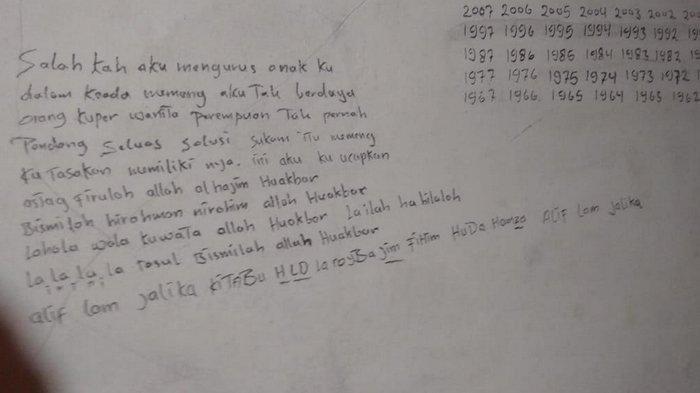 2007 2006 2005 2004 2003 2002
1997 1996 1995 1994 1993 1992
1987 1986 1985 1984 1983 1982
1977 1976 1975 1974 1973 1972
1967 1966 1965 1964 1963 1962
Salah kah aku mengurus anak ku
dalam memang aku Tak berdaya
orang kuper wanita perempuan Tak pernah
Pandang Seluas Solusi Sukam itu memang
ku rasakan memiliki nya. ini aku ku ucapkan
firuloh alloh al hajim Huakbar
Bismiloh hirohman nirohim alloh Huakbar
Lahola wala kuwata alloh Huakbar lailah ha hilaloh
la la la la rosul Bismilah allah Huakbar
alif lam jalika KITABu HLD laroyBa jim FiHim HuDa Hamza Alif lam jalika